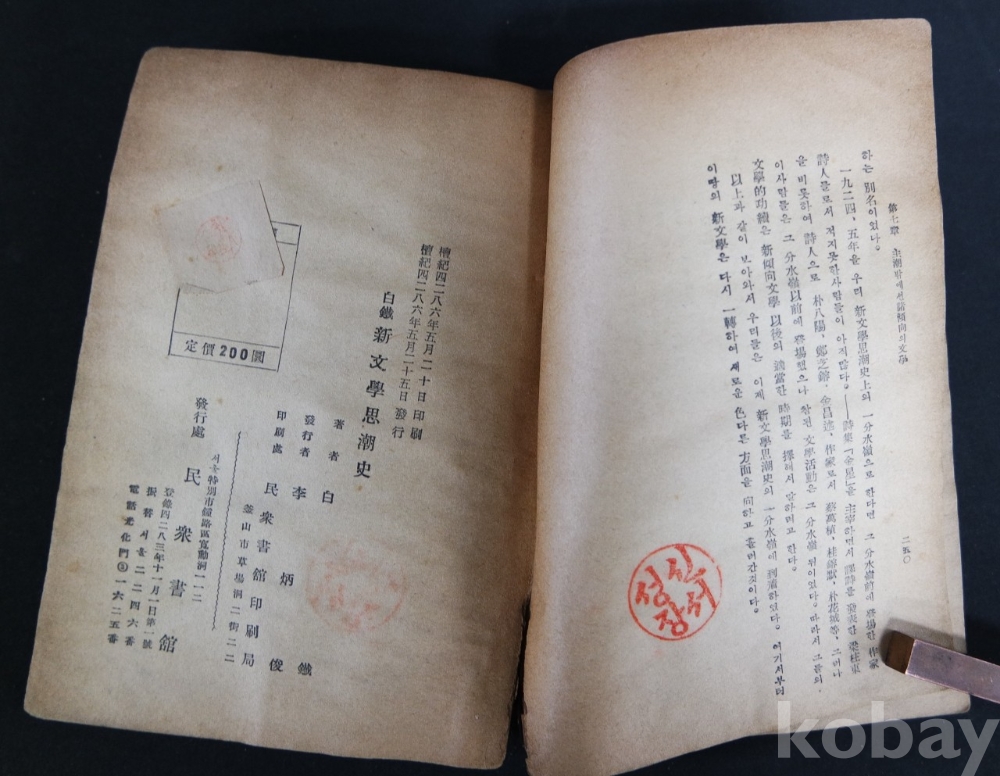 第七章 主潮밖에선諸傾向의文學
二五〇
하는 別名이었다。
一九二四, 五年을 우리 新文學思潮史上의 一分水嶺으로 한다면 그 分水嶺前에 登場한 作家
詩人들로서 적지못한사람들이 아직많다。——詩集「金星」을 主宰하면서 譯詩를 發表한 梁柱東
을 비롯하여 詩人으로 朴八陽, 鄭芝鎔, 金昌述, 作家로서 蔡萬植, 桂鎔默, 朴花城等, 그러나
이사람들은 그 分水嶺以前에 登場했으나 참된 文學活動은 그 分水嶺 뒤이었다。따라서 그들의
文學的功績은 新傾向文學 以後의 適當한 時期를 擇해서 말하려고 한다。
以上과 같이 보아와서 우리들은 이제 新文學思潮史의 一分水嶺에 到達하였다。여기서부터
이땅의 新文學은 다시 一轉하여 새로운 色다른 方面을 向하고 흘러간것이다。
성신장서
檀紀四二八六年五月二十日 印刷
檀紀四二八六年五月二十五日 發行
白鐵 新文學思潮史
著者 白鐵
發行者 李炳俊
印刷處 民衆書館印刷局
釜山市草場洞二街二二
서울特別市鍾路區寬勳洞一一二
發行處 民衆書館
登錄四二八三年十一月一日第一號
振替서울二二四六番
電話光化門③一六二五番
定價200圜
kobay